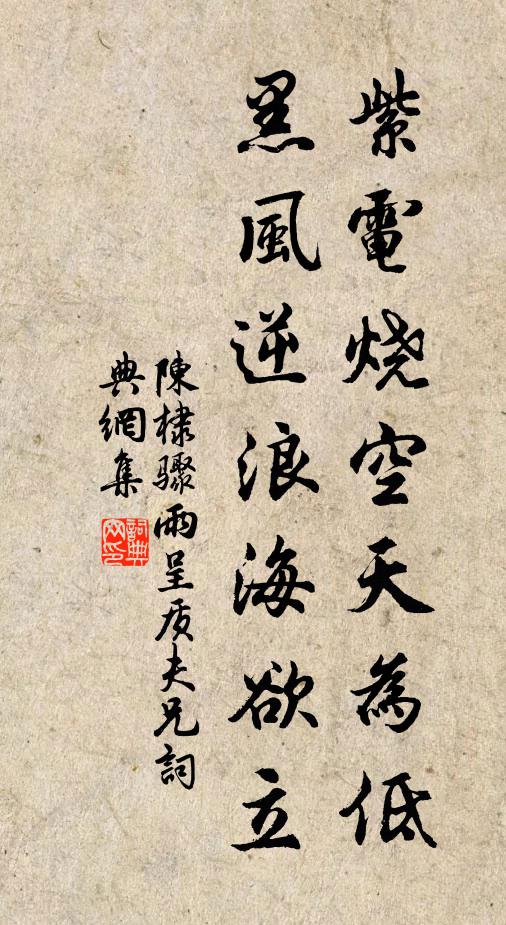 紫電烧空天為低
黑風逆浪海欲立
陳棣驟雨呈质夫兄詞
典網集
詞典
网印